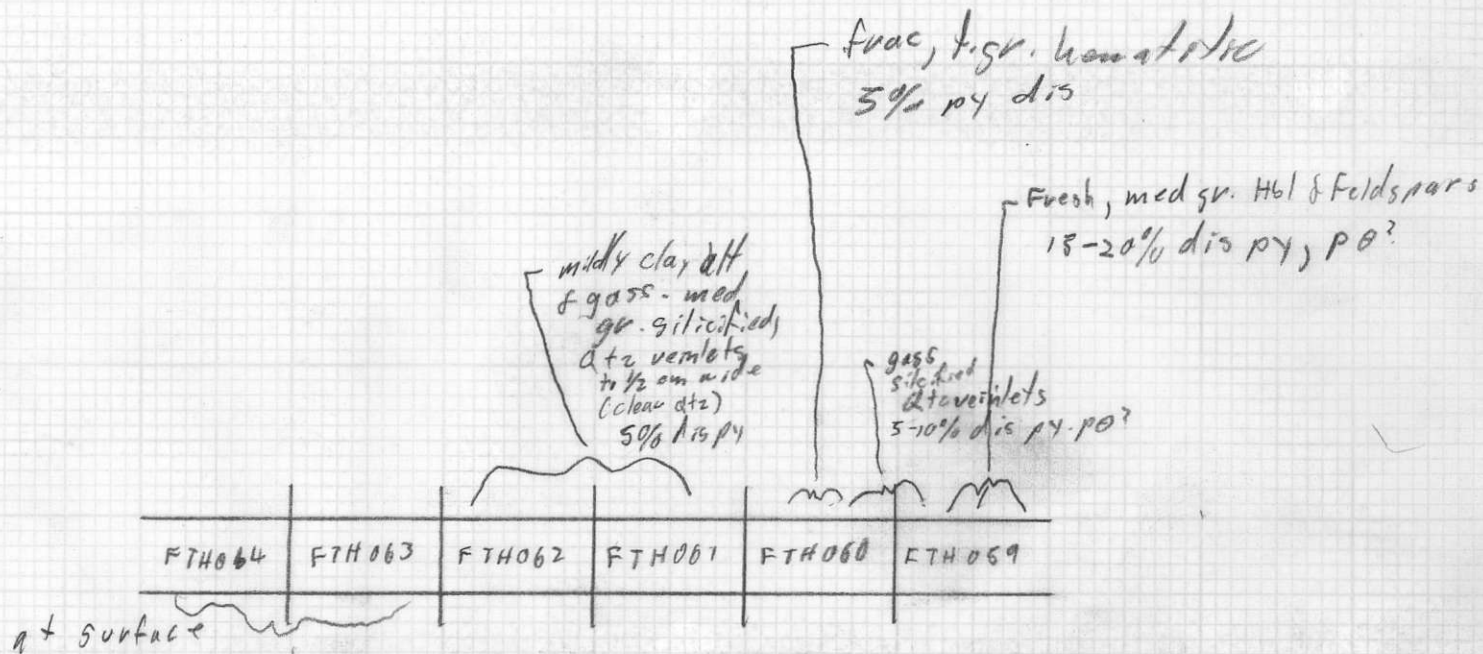 frac, f.gr. hematitic
5% py dis
Fresh, med gr. Hbl & Feldspars
15-20% dis py, pθ?
mildly clay alt
& goss- med
gr. silicified,
Qtz veinlets
to 1/2 cm wide
(clear qtz)
5% dis py
goss
silicified
Qtz veinlets
5-10% dis py-pθ?
FTH064 FTH063 FTH062 FTH061 FTH060 FTH059
at surface